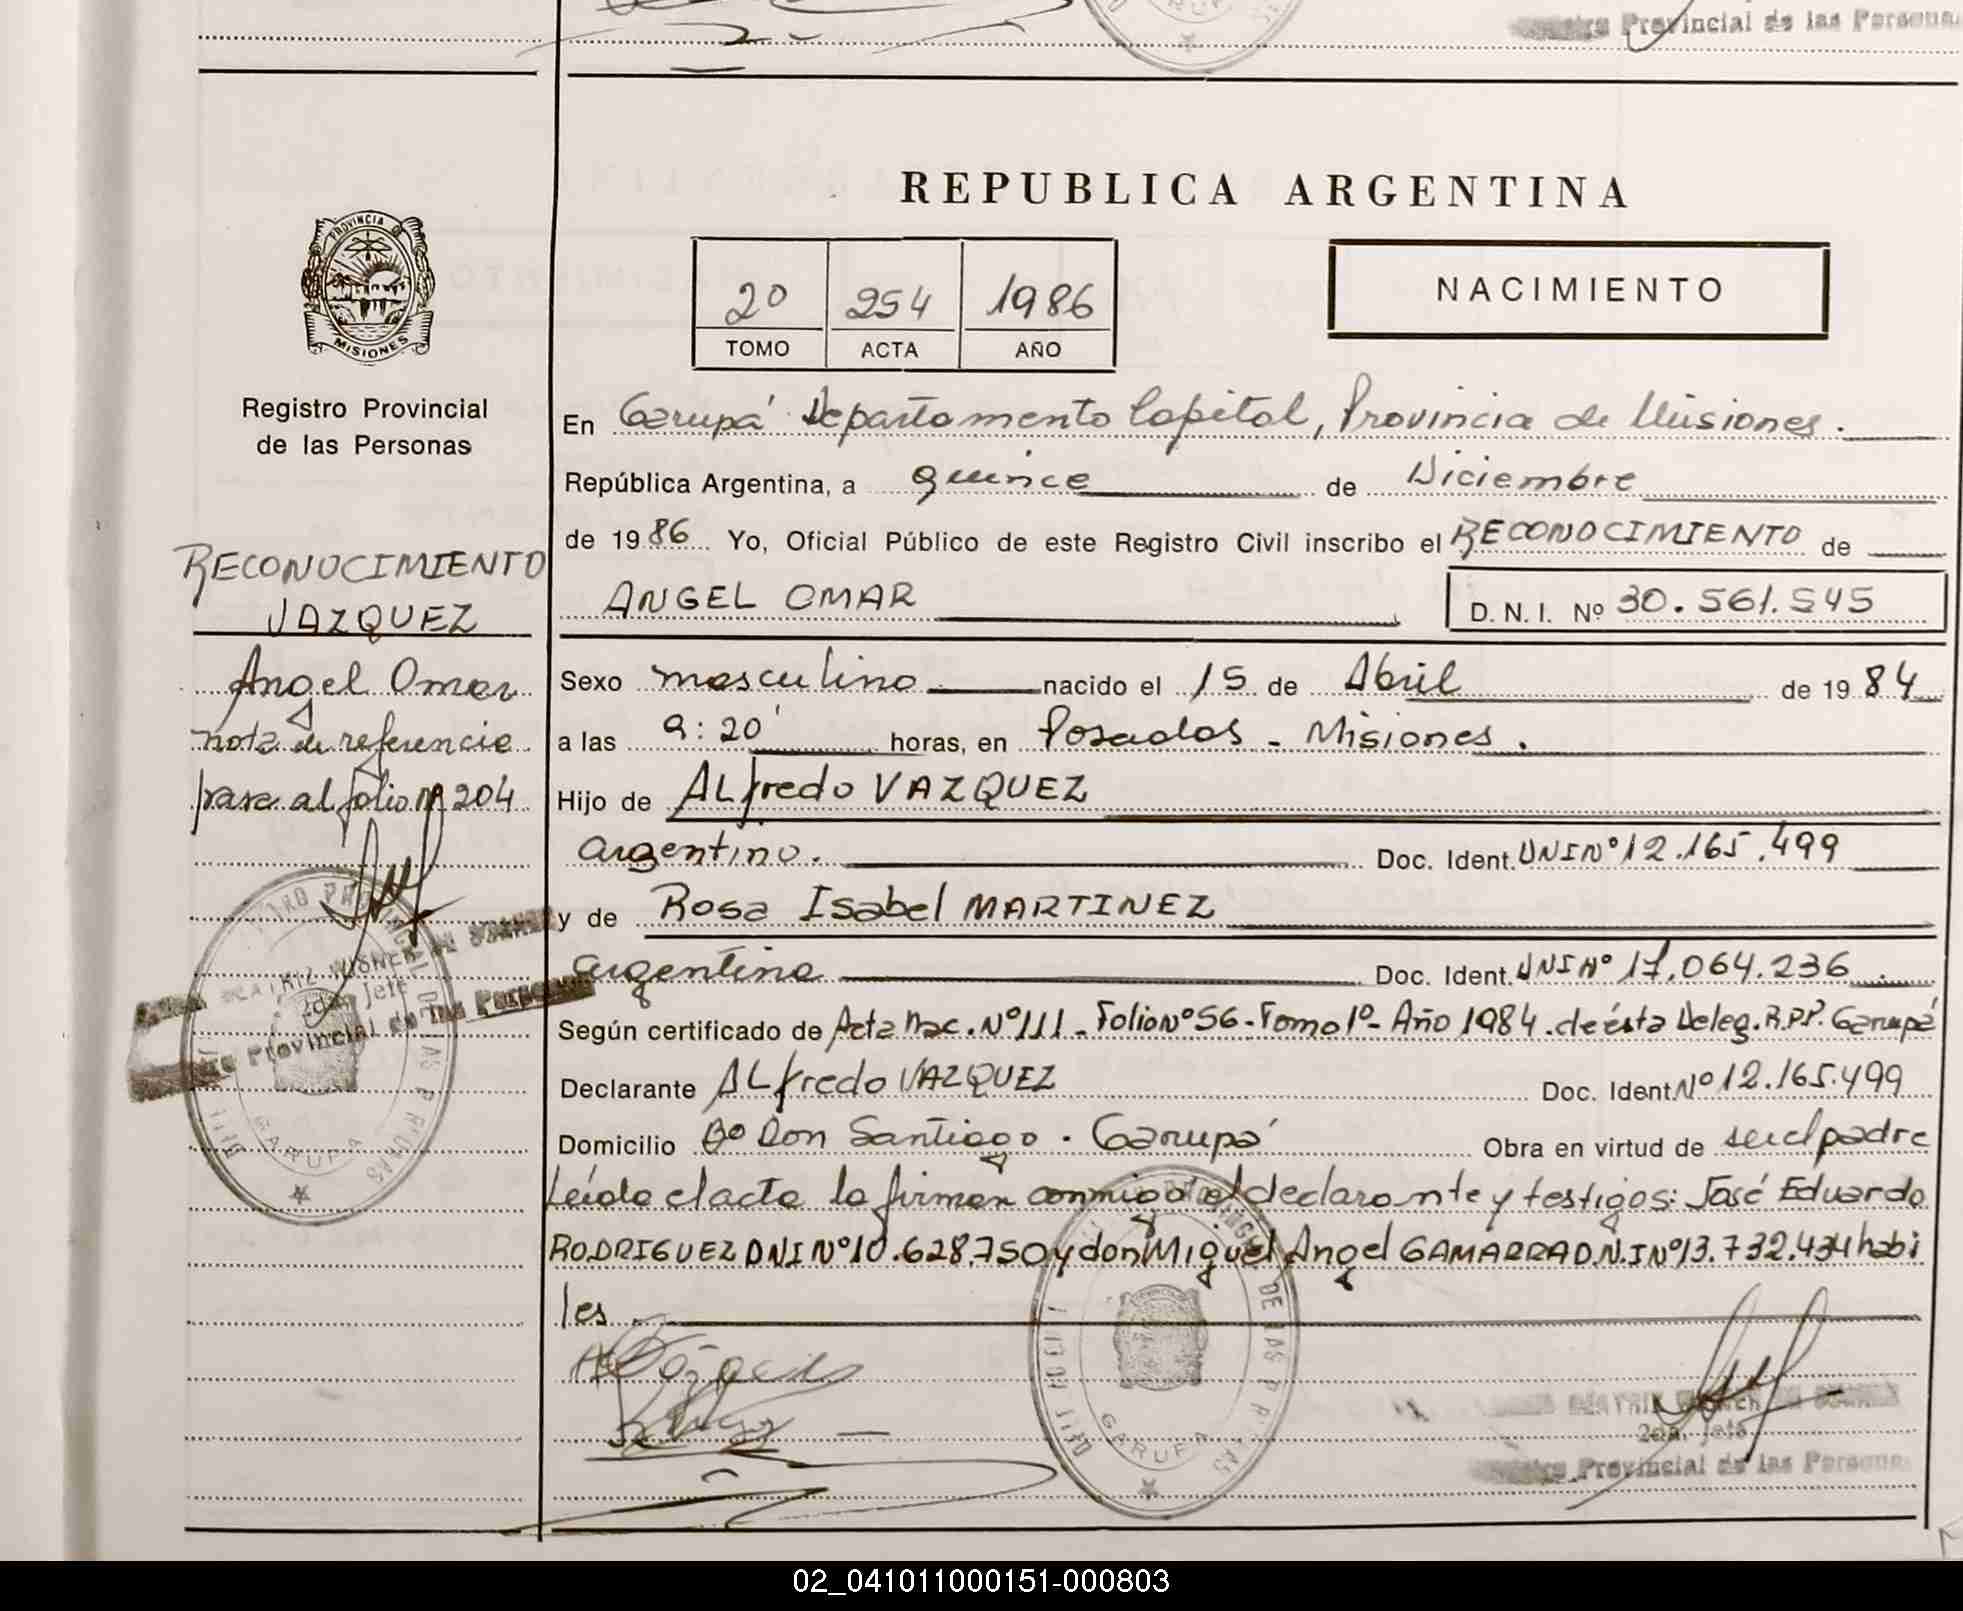 Provincial de las Persona
REPUBLICA ARGENTINA
PROVINCIA DE
MISIONES
20 254 1986
TOMO ACTA AÑO
NACIMIENTO
Registro Provincial
de las Personas
En Garupá Departamento Capital, Provincia de Misiones.
República Argentina, a quince de Diciembre
de 1986 Yo, Oficial Público de este Registro Civil inscribo el RECONOCIMIENTO de
ANGEL OMAR D. N. I. Nº 30.561.545
RECONOCIMIENTO
VAZQUEZ
Angel Omar
nota de referencia
pasa al folio Nº 204
Sexo masculino nacido el 15 de Abril de 1984
a las 9:20' horas, en Posadas - Misiones.
Hijo de ALfredo VAZQUEZ
argentino. Doc. Ident. DNI Nº 12.165.499
y de Rosa Isabel MARTINEZ
argentina Doc. Ident. DNI Nº 17.064.236
Según certificado de Acta Nac. Nº 111 - Folio Nº 56 - Tomo 1º - Año 1984. de ésta Deleg. R.P.P. Garupá
Declarante ALfredo VAZQUEZ Doc. Ident. Nº 12.165.499
Domicilio Bº Don Santiago. Garupá Obra en virtud de ser el padre
Leída el acta la firman conmigo el declarante y testigos: José Eduardo
RODRIGUEZ DNI Nº 10.628.750 y don Miguel Angel GAMARRA D.N.I Nº 13.732.434 habi
les
BEATRIZ WISNER DE
2da. Jefe
Provincial de las Personas
GARUPA
GARUPA
BEATRIZ
2da. Jefe
Provincial de las Persona
02_041011000151-000803